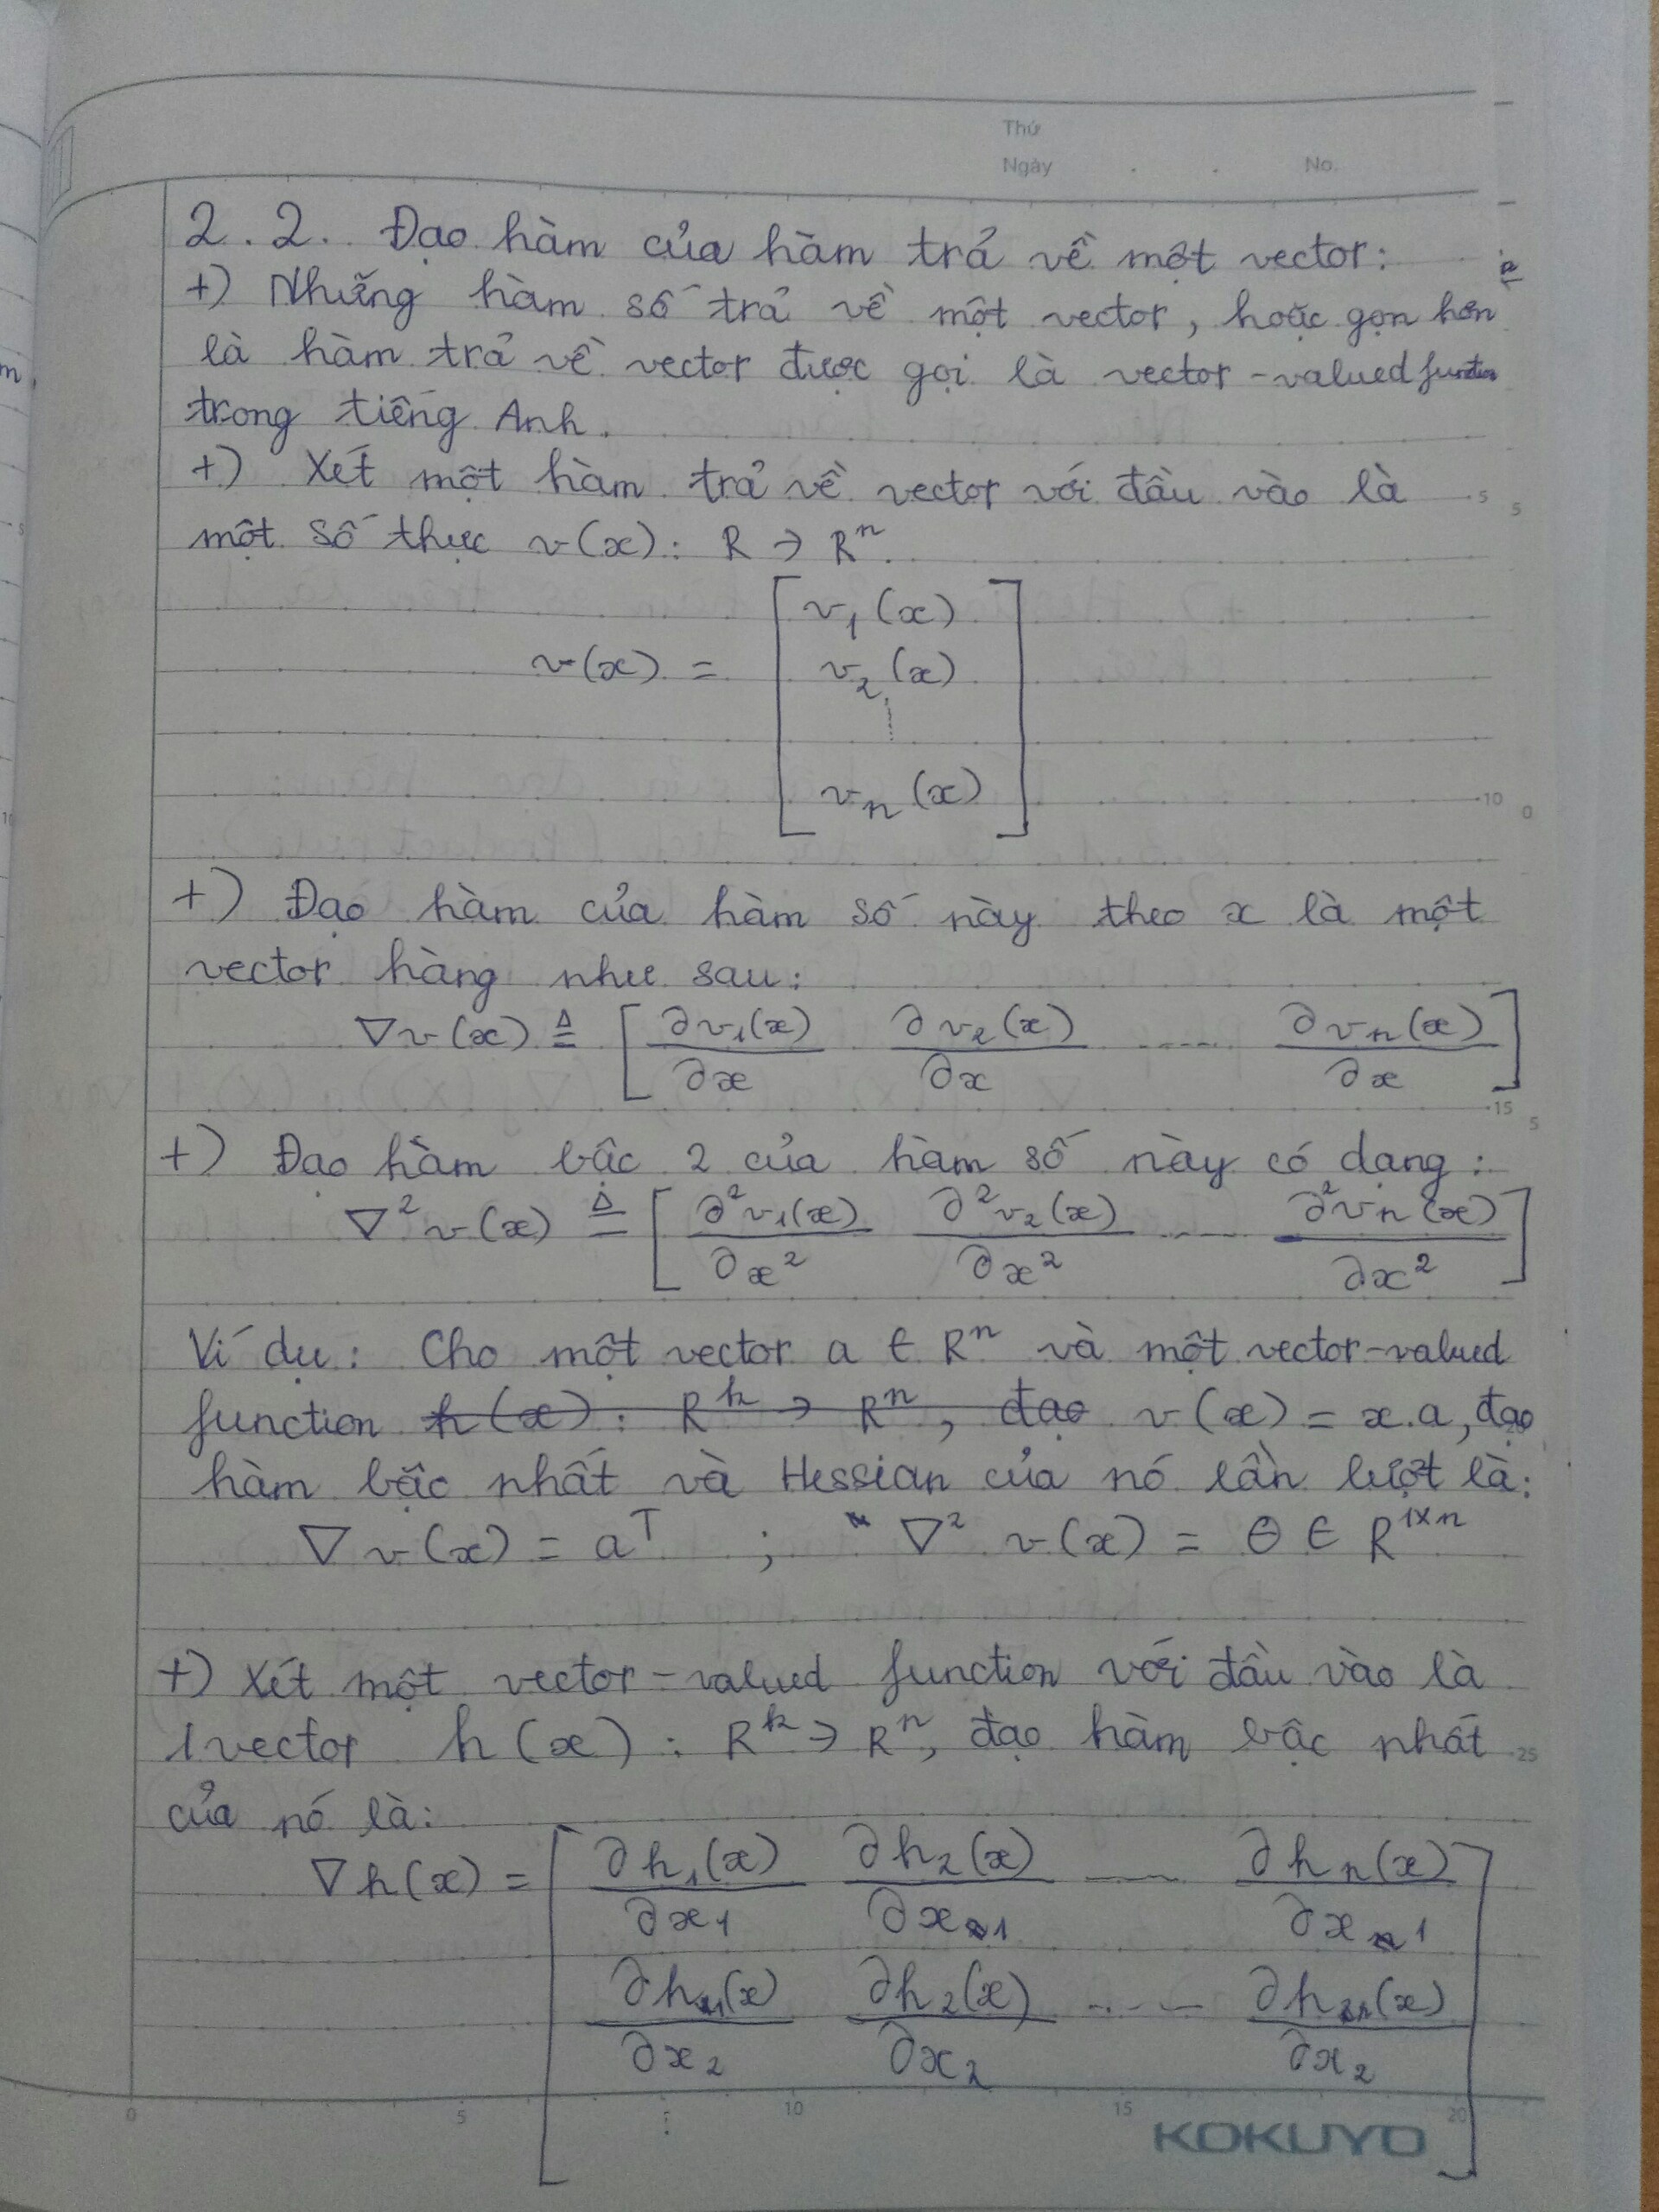 Thứ
Ngày . . No.
2.2. Đạo hàm của hàm trả về một vector:
+) Những hàm số trả về một vector, hoặc gọn hơn
là hàm trả về vector được gọi là vector-valued function
trong tiếng Anh.
+) Xét một hàm trả về vector với đầu vào là
một số thực v(x): R → Rⁿ.
v(x) = [ v₁(x)
v₂(x)
⋮
vₙ(x) ]
+) Đạo hàm của hàm số này theo x là một
vector hàng như sau:
∇v(x) ≜ [ ∂v₁(x)/∂x ∂v₂(x)/∂x ..... ∂vₙ(x)/∂x ]
+) Đạo hàm bậc 2 của hàm số này có dạng:
∇²v(x) ≜ [ ∂²v₁(x)/∂x² ∂²v₂(x)/∂x² ..... ∂²vₙ(x)/∂x² ]
Ví dụ: Cho một vector a ∈ Rⁿ và một vector-valued
function h(x): Rᵏ → Rⁿ, đạo v(x) = x.a, đạo
hàm bậc nhất và Hessian của nó lần lượt là:
∇v(x) = aᵀ ; ∇² v(x) = 0 ∈ R¹ˣⁿ
+) Xét một vector-valued function với đầu vào là
1 vector h(x): Rᵏ → Rⁿ, đạo hàm bậc nhất
của nó là:
∇h(x) = [ ∂h₁(x)/∂x₁ ∂h₂(x)/∂x₁ ..... ∂hₙ(x)/∂x₁
∂h₁(x)/∂x₂ ∂h₂(x)/∂x₂ ..... ∂hₙ(x)/∂x₂
⋮ ]
0 5 10 15 20
KOKUYO